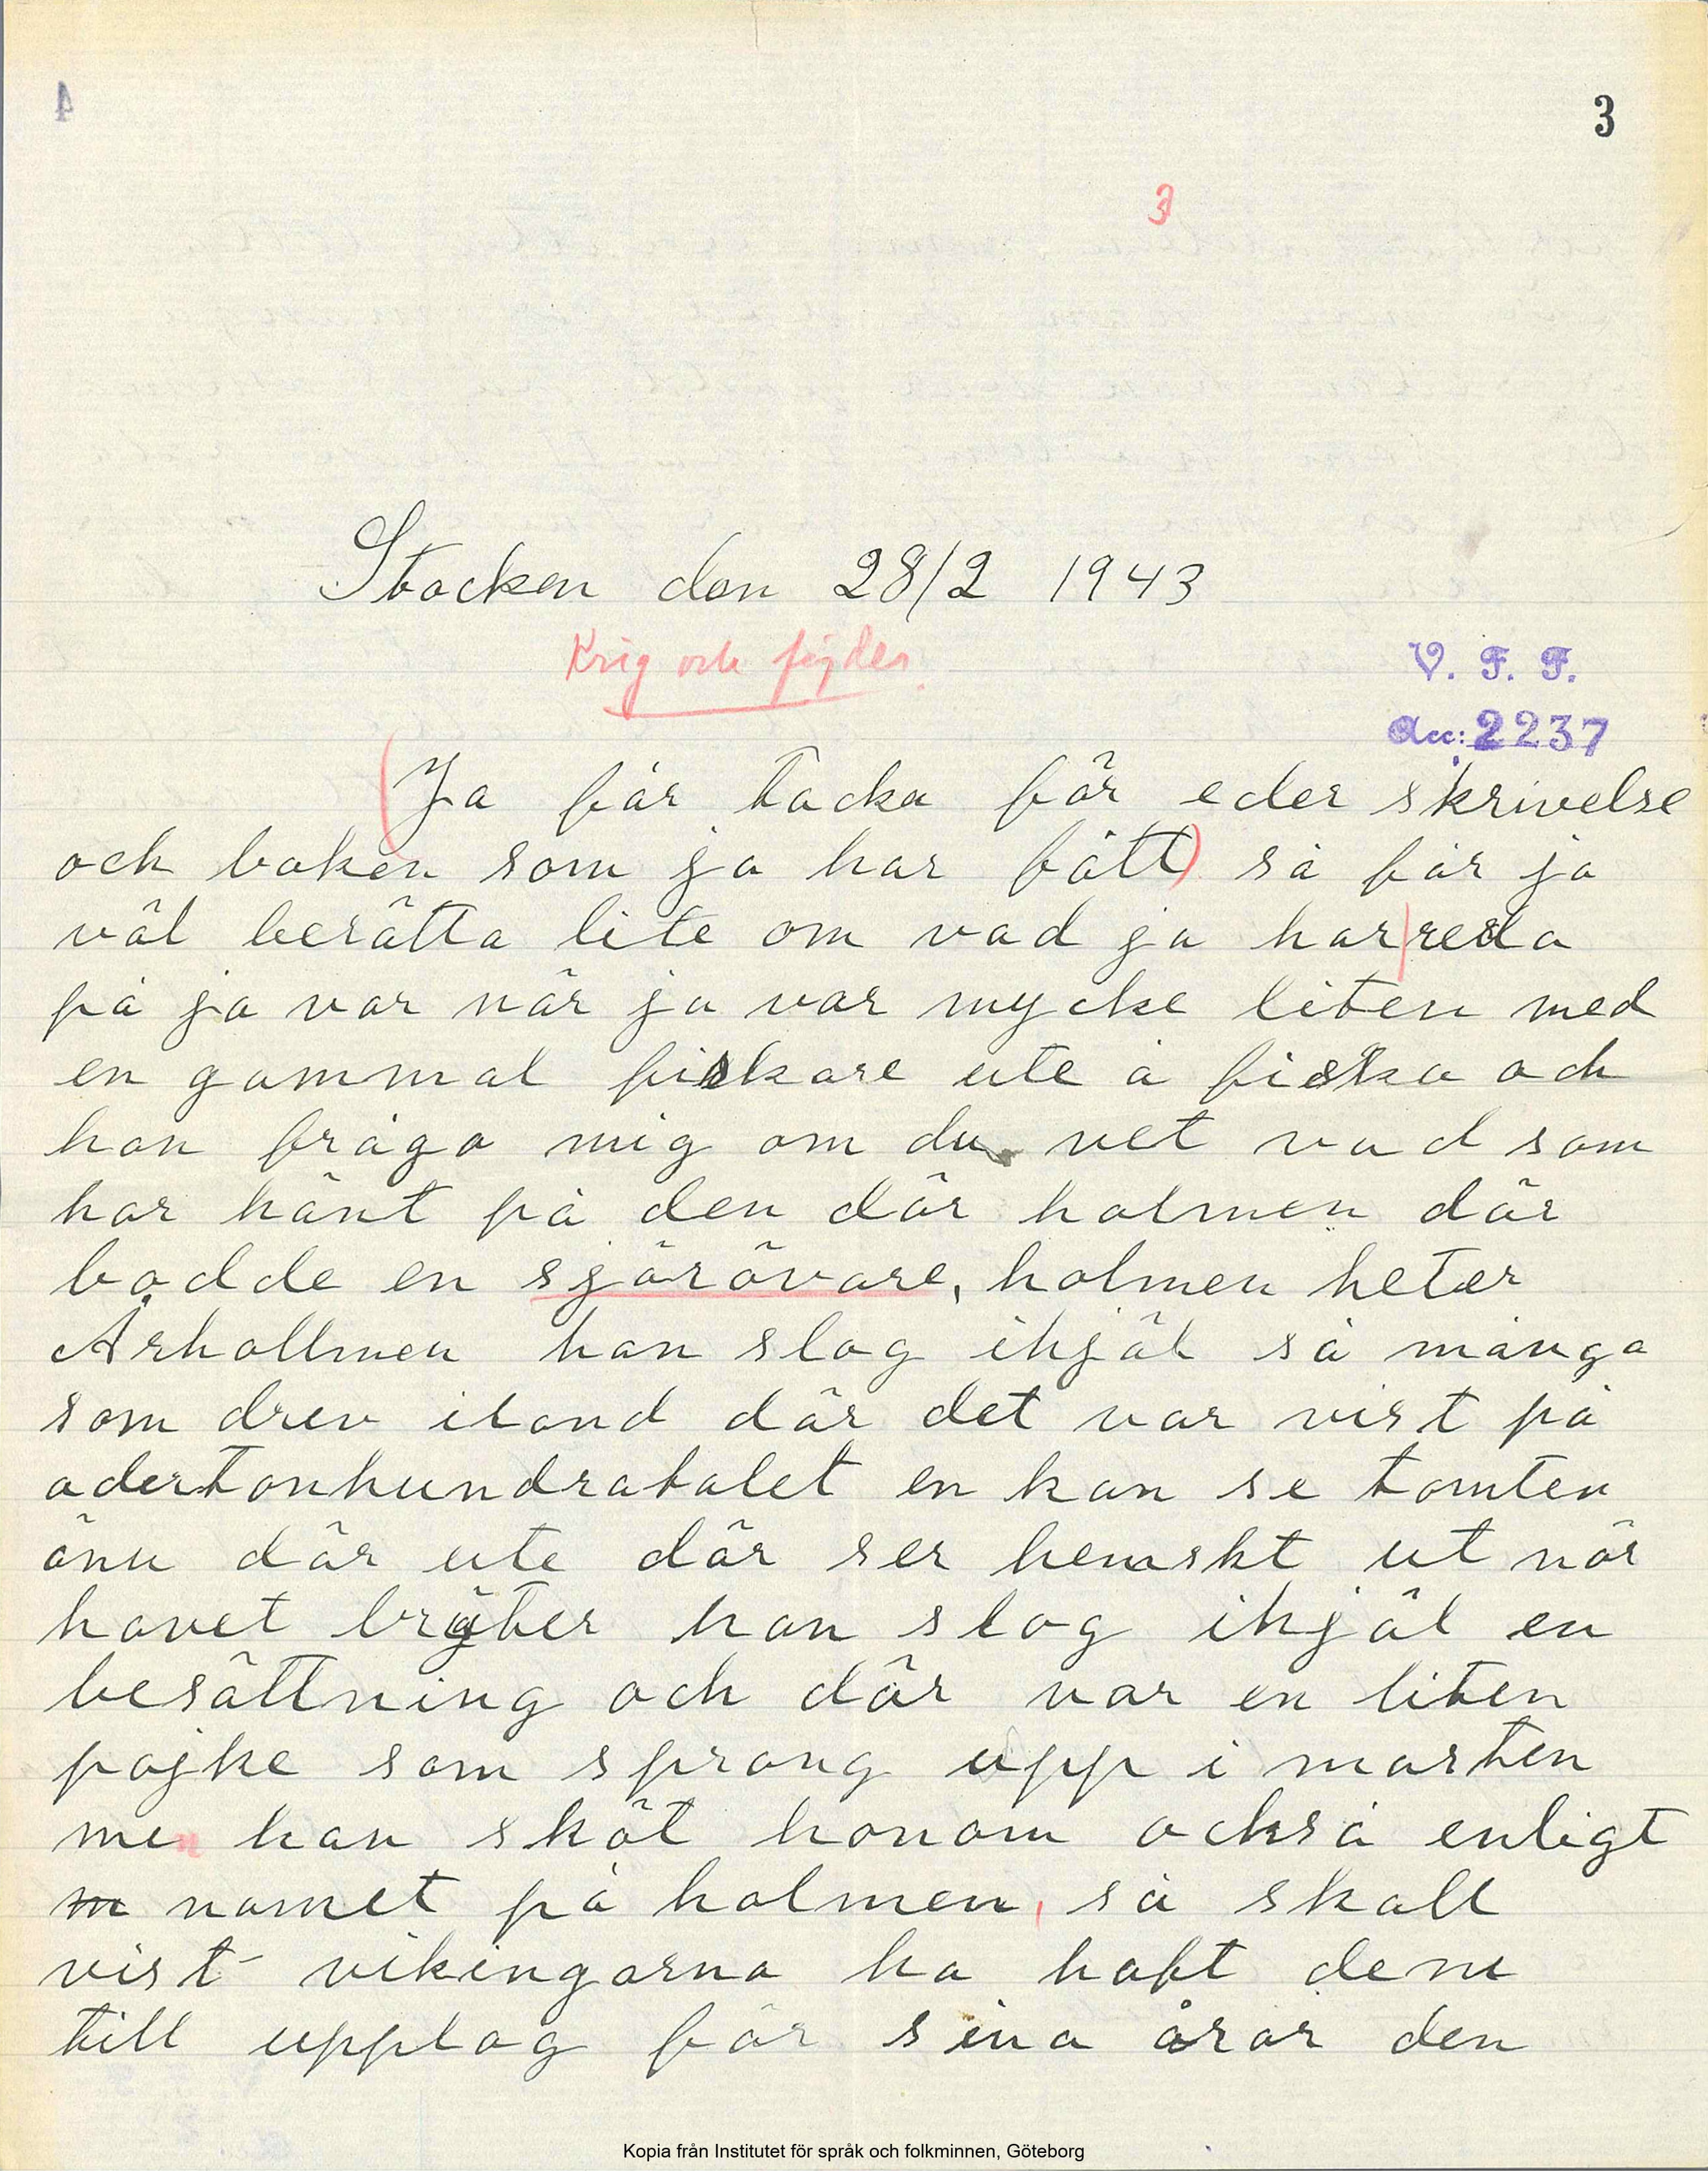 3
3
Stocken den 28/2 1943
Krig och fejder.
V. F. F.
Acc: 2237
(Ja får tacka för eder skrivelse
och boken som ja har fått) så får ja
väl berätta lite om vad ja har reda
på ja var när ja var mycke liten med
en gammal fiskare ute å fiska och
han fråga mig om du vet vad som
har hänt på den där holmen där
bodde en sjörövare, holmen heter
Århollmen han slog ihjäl så många
som drev iland där det var vist på
adertonhundratalet en kan se tomten
änu där ute där ser hemskt ut när
havet bryter han slog ihjäl en
besättning och där var en liten
pojke som sprang upp i masten
men han sköt honom också enligt
m namet på holmen, så skall
vist vikingarna ha haft dem
till upplag för sina åror den
Kopia från Institutet för språk och folkminnen, Göteborg